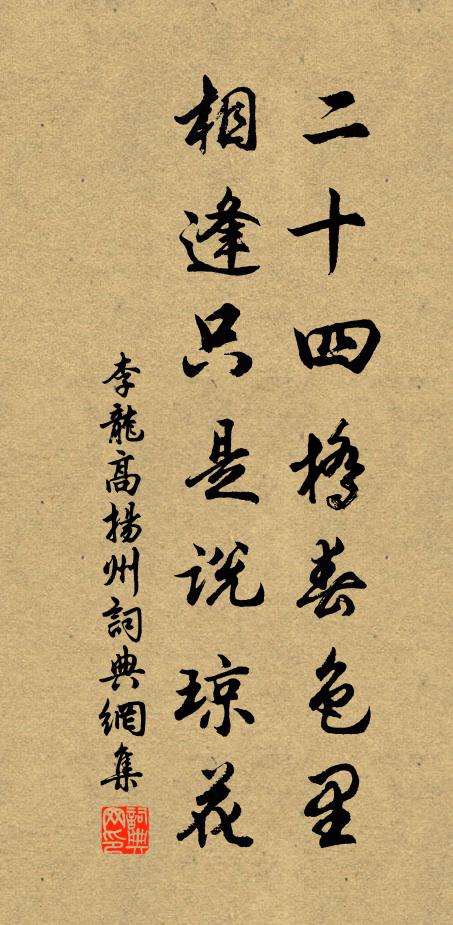 二十四橋春色里
相逢只是说琼花
李龍高揚州詞典網集
詞典網印